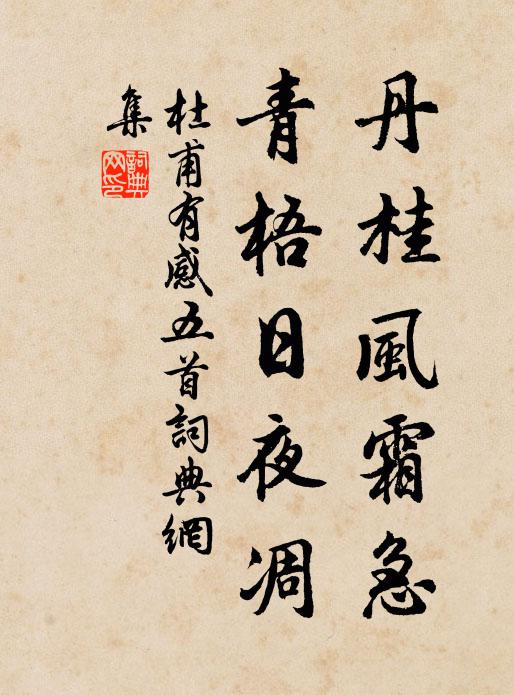 丹桂風霜急
青梧日夜凋
杜甫有感五首詞典網
集
詞典網印